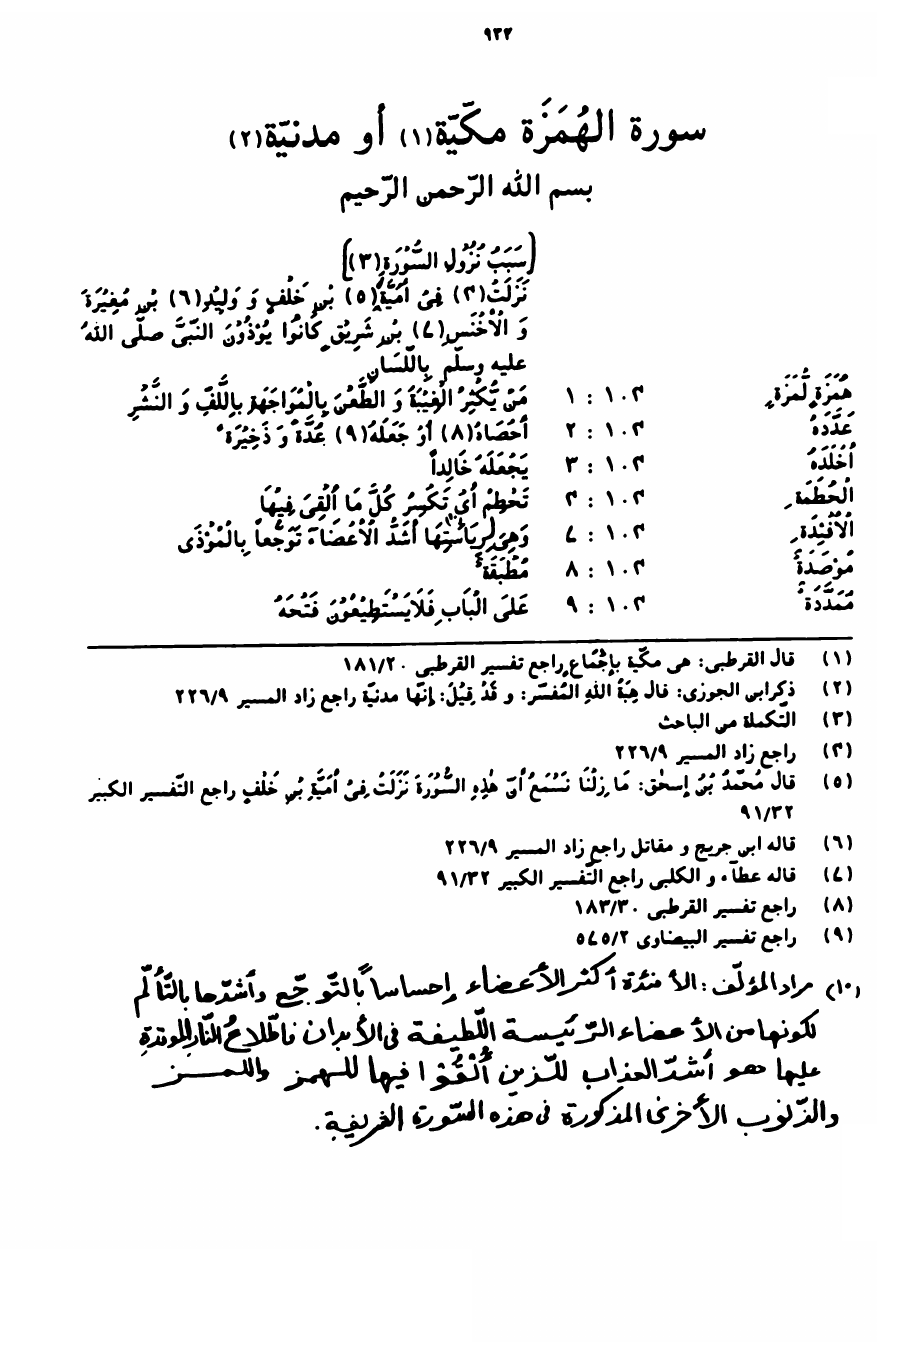 ٩٣٢
سورة الهُمَزَة مكّيّة(١) أو مدنيّة(٢)
بسم الله الرّحمن الرّحيم
[سَبَبُ نُزُولِ السُّوْرَةِ(٣)]
نَزَلَتْ(٤) فِىْ اُمَيَّةَ(٥) بْنِ خَلْفٍ وَ وَلِيْدِ(٦) بْنِ مُغِيْرَةَ
وَ الْاَخْنَسِ(٧) بْنِ شَرِيْقٍ كَانُوْا يُوْذُوْنَ النَّبِىَّ صلّى اللهُ
عليه وسلّم بِاللِّسَانِ
هُمَزَةٍ لُّمَزَةٍ ١٠٤ : ١ مَنْ يُّكْثِرُ الْغِيْبَةَ وَ الطَّعْنَ بِالْمُوَاجَهَةِ بِاللَّفِّ وَ النَّشْرِ
عَدَّدَهٗ ١٠٤ : ٢ اَحْصَاهُ(٨) اَوْ جَعَلَهُ(٩) عُدَّةً وَ ذَخِيْرَةً
اَخْلَدَهٗ ١٠٤ : ٣ يَجْعَلُهُ خَالِداً
الْحُطَمَةِ ١٠٤ : ٤ تَحْطِمُ اَىْ تَكْسِرُ كُلَّ مَا اُلْقِىَ فِيْهَا
الْاَفْئِدَةِ ١٠٤ : ٧ وَهِىَ لِرِيَاسَتِهَا اَشَدُّ الْاَعْضَآءِ تَوَجُّعاً بِالْمُوْذَى
مُوْصَدَةٌ ١٠٤ : ٨ مُطْبَقَةٌ
مُمَدَّدَةٍ ١٠٤ : ٩ عَلَى الْبَابِ فَلَايَسْتَطِيْعُوْنَ فَتْحَهُ
(١) قال القرطبى: هى مكّية بِإجْمَاعٍ راجع تفسير القرطبى ١٨١/٢٠
(٢) ذكرابن الجوزى: قال هِبَةُ اللهِ المُفسّر: و قَدْ قِيْلَ: إنّها مدنيّة راجع زاد المسير ٢٢٦/٩
(٣) التّكملة من الباحث
(٤) راجع زاد المسير ٢٢٦/٩
(٥) قال مُحَمّدُ بْنُ إسحٰق: مَا زِلْنَا نَسْمَعُ أنّ هٰذِهِ السُّوْرَةَ نَزَلَتْ فِىْ اُمَيَّةَ بْنِ خَلْفٍ راجع التّفسير الكبير
٩١/٣٢
(٦) قاله ابن جريج و مقاتل راجع زاد المسير ٢٢٦/٩
(٧) قاله عطآء و الكلبى راجع التّفسير الكبير ٩١/٣٢
(٨) راجع تفسير القرطبى ١٨٣/٣٠
(٩) راجع تفسير البيضاوى ٥٧٥/٢
(١٠) مراد المؤلّف: الأفئدة أكثر الأعضاء إحساساً بالتّوجّع وأشدّها بالتّألّم
لكونها من الأعضاء الرّئيسة اللّطيفة فى الأبدان فاطّلاعُ النّار الموقدة
عليها هو أشدّ العذاب للّذين أُلْقُوْا فيها للهمز واللمز
والذّنوب الأخرى المذكورة فى هذه السّورة الشريفة.